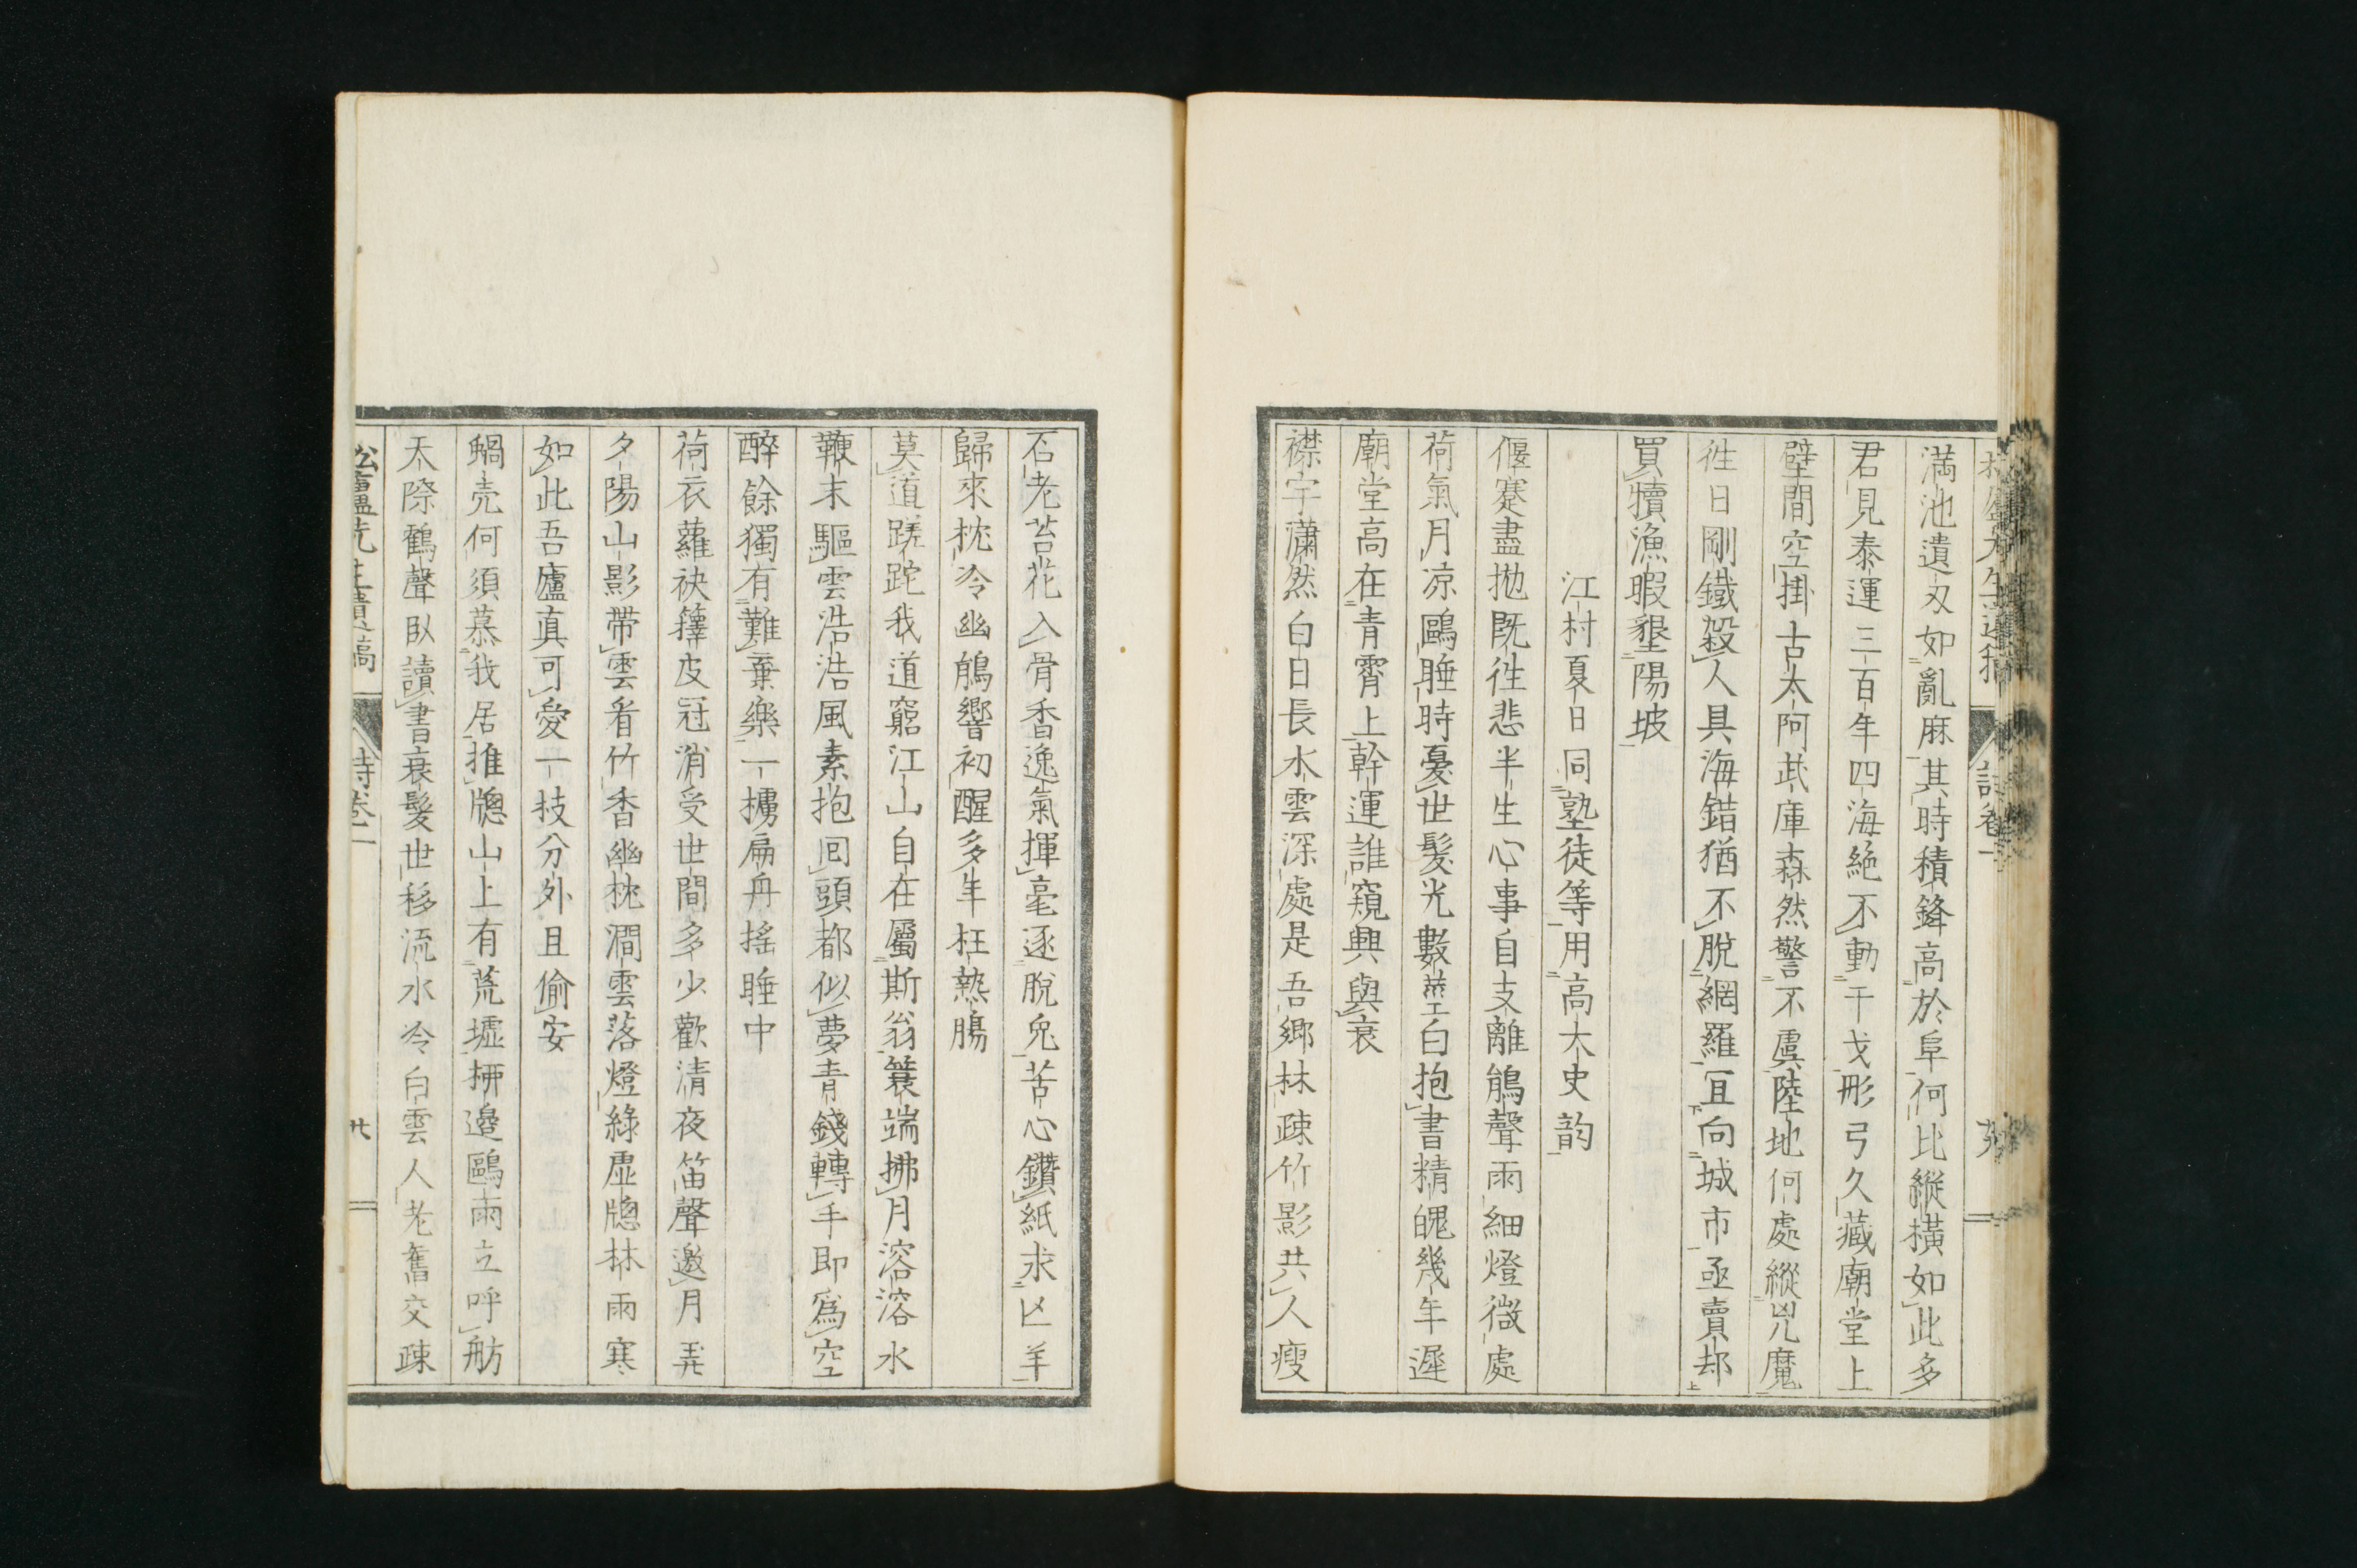 滿池遺刃如亂麻其時積鋒高於阜何比縱橫如此多
君見泰運三百年四海絶不動干戈形弓久藏廟堂上
壁間空掛古太阿武庫森然警不虞陸地何處縱兕魔
徃日剛鐵殺人具海錯猶不脫網羅宜向城市亟賣却
買犢漁暇墾陽坡
江村夏日同塾徒等用高大史韵
偃蹇盡拋既徃悲半生心事自支離鵑聲雨細燈微處
荷氣月凉鷗睡時憂世髮光數莖白抱書精魄幾年遲
廟堂高在青霄上幹運誰窺興與衰
襟宇瀟然白日長水雲深處是吾鄉林疎竹影共人瘦
石老苔花入骨香逸氣揮毫逐脫兔苦心鑽紙求亡羊
歸來枕冷幽鵑響初醒多年枉熱膓
莫道蹉跎我道窮江山自在屬斯翁簑端拂月溶溶水
鞭末驅雲浩浩風素抱回頭都似夢青錢轉手即爲空
醉餘獨有難棄樂一擄扁舟搖睡中
荷衣蘿袂籜皮冠消受世間多少歡清夜笛聲邀月弄
夕陽山影帶雲看竹香幽枕澗雲落燈綠虛牕林雨寒
如此吾廬眞可愛一技分外且偷安
蝸壳何須慕我居推牕山上有荒墟栁邊鷗雨立呼舫
天際鶴聲臥讀書衰髮世移流水冷白雲人老舊交疎
松廬先生遺稿 詩卷一 廿